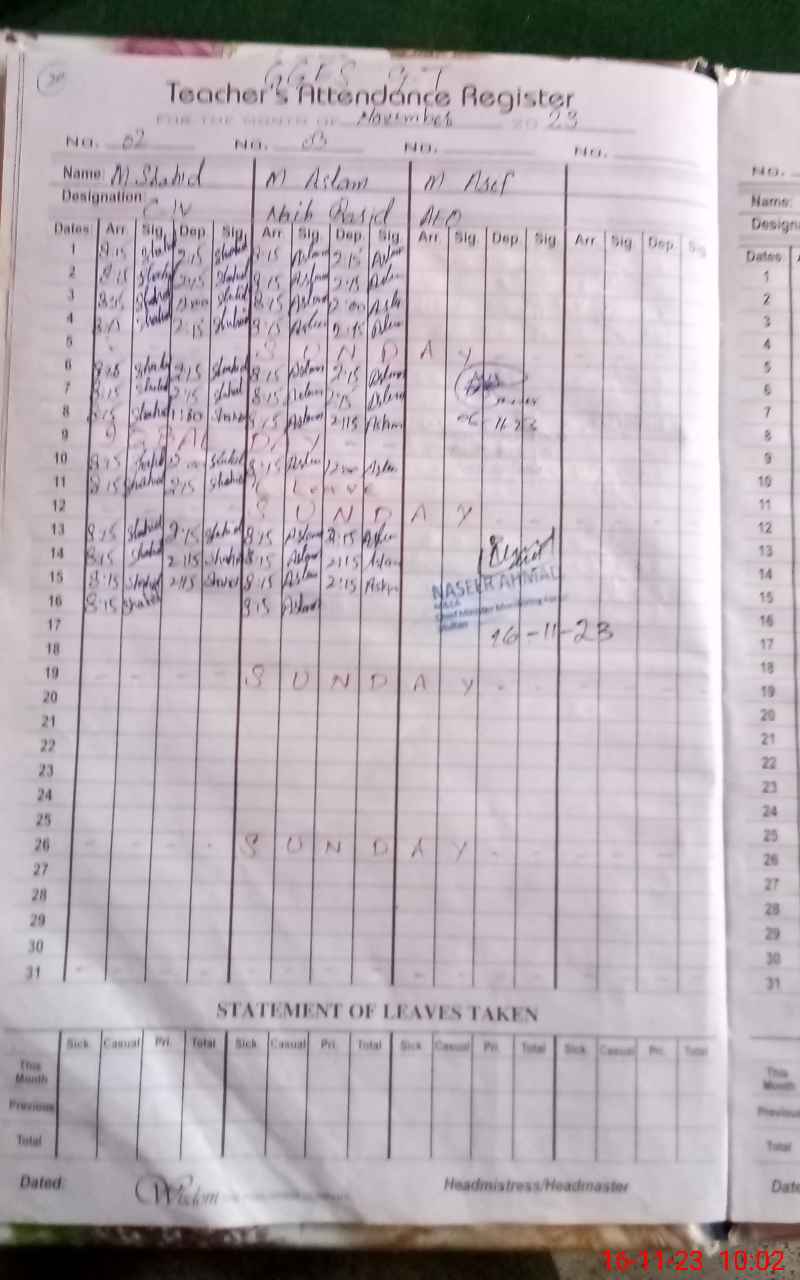 Teacher's Attendance Register
FOR THE MONTH OF November 2023
No. 02 No. 03 No. No.
Name: M Shahid M Aslam M Asif
Designation: C IV Naib Qasid
Dates Arr. Sig. Dep. Sig. Arr. Sig. Dep. Sig. Arr. Sig. Dep. Sig. Arr. Sig. Dep. Sig.
1 8:15 Shahid 2:15 Shahid 8:15 Aslam 2:15 Aslam
2 8:15 Shahid 2:15 Shahid 8:15 Aslam 2:15 Aslam
3 8:15 Shahid 12:00 Shahid 8:15 Aslam 12:00 Aslam
4 8:15 Shahid 2:15 Shahid 8:15 Aslam 2:15 Aslam
5 SUNDAY
6 Shahid 2:15 Shahid 8:15 Aslam 2:15 Aslam
7 8:15 Shahid 2:15 Shahid 8:15 Aslam 2:15 Aslam
8 8:15 Shahid 1:30 Shahid 8:15 Aslam 2:15 Aslam 11-23
9 IQBAL DAY
10 8:15 Shahid 12:00 Shahid 8:15 Aslam 12:00 Aslam
11 8:15 Shahid 2:15 Shahid C Leave
12 SUNDAY
13 8:15 Shahid 2:15 Shahid 8:15 Aslam 2:15 Aslam
14 8:15 Shahid 2:15 Shahid 8:15 Aslam 2:15 Aslam
15 8:15 Shahid 2:15 Shahid 8:15 Aslam 2:15 Aslam NASEER AHMAD
16 8:15 Shahid 8:15 Aslam
17 16-11-23
18
19 SUNDAY
20
21
22
23
24
25
26 SUNDAY
27
28
29
30
31
STATEMENT OF LEAVES TAKEN
Sick Casual Pri. Total Sick Casual Pri. Total Sick Casual Pri. Total Sick Casual Pri. Total
This Month
Previous
Total
Dated: Wisdom Headmistress/Headmaster
No.
Name:
Dates
1
2
3
4
5
6
7
8
9
10
11
12
13
14
15
16
17
18
19
20
21
22
23
24
25
26
27
28
29
30
31
This
Month
Total
16-11-23 10:02